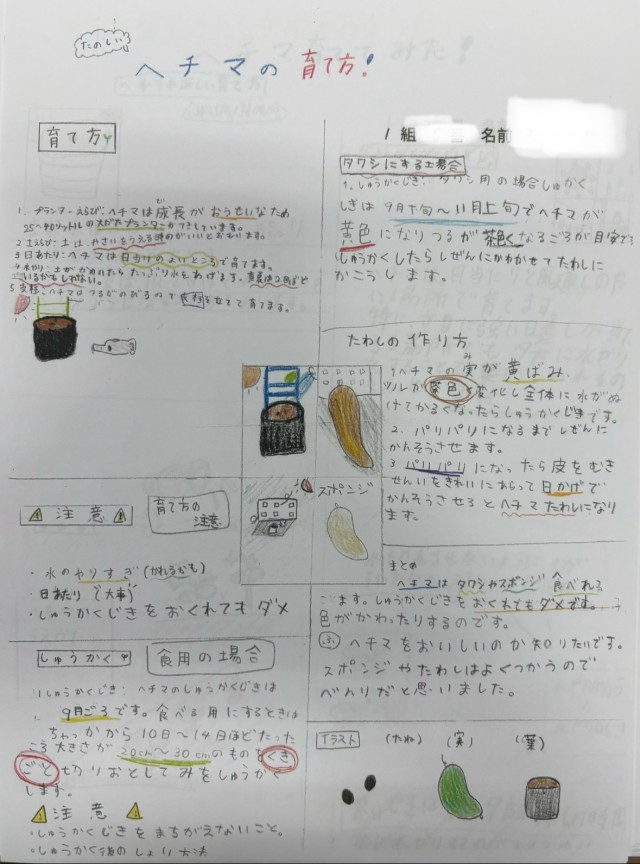 たのしい
ヘチマの育て方!
1組 名前
育て方
1. プランターえらび: ヘチマは成長がおうせいなため
25〜 の大がたプランターが てきしています。
2 土えらび: 土は、やさいをうえる時のがいいとおもいます。
3 日あたり: ヘチマは日当りのよいところで育てます。
4 水やり: 土がかわいたらたっぷり水をあげます。
5 支柱: ヘチマはつるがのびるので支柱を立てて育てます。
注意
育て方の
注意
・水のやりすぎ(かれるかも)
・日あたり(大事)
・しゅうかくじきをおくれてもダメ
しゅうかく
食用の場合
1. しゅうかくじき: ヘチマのしゅうかくじきは
9月ごろです。食べる用にするときは
ちゃっかから10日〜14日ほどたった
ころ大きさが20cm〜30cmのものをくき
ごと切りおとしてみをしゅうかく
します。
注意
・しゅうかくじきをまちがえないこと。
・しゅうかく後のしょり方法
タワシにする場合
1. しゅうかくじき: タワシ用の場合しゅうかく
じきは9月下旬〜11月上旬でヘチマが
黄色になりつるが茶色くなるころが目安です
しゅうかくしたらしぜんにかわかせてたわしに
かこうします。
たわしの作り方
1 ヘチマの実が黄ばみ、
み
ツルが茶色く変化し全体に水がぬ
けてかるくなったらしゅうかくじきです。
2. パリパリになるまでしぜんに
かんそうさせます。
3 パリパリになったら皮をむき
せんいをきれいにあらって日かげで
かんそうさせるとヘチマたわしになり
ます。
スポンジ
まとめ
ヘチマはタワシやスポンジ 食べれる
ございます。しゅうかくじきをおくれてもダメです。
色がかわったりするのです。
ヘチマをおいしいのか知りたいです。
スポンジやたわしはよくつかうので
べんりだと思いました。
イラスト
(たね)
(実)
(葉)